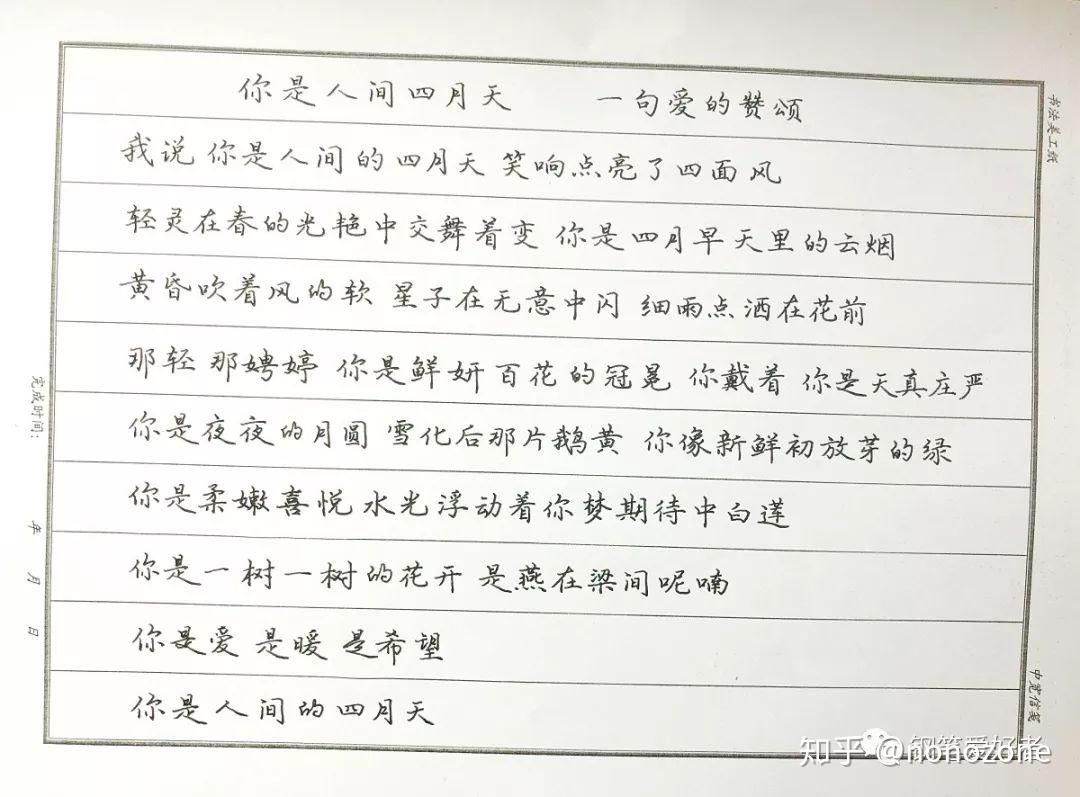 你是人间四月天 一句爱的赞颂
我说 你是人间的四月天 笑响点亮了四面风
轻灵在春的光艳中交舞着变 你是四月早天里的云烟
黄昏吹着风的软 星子在无意中闪 细雨点洒在花前
那轻 那娉婷 你是鲜妍百花的冠冕 你戴着 你是天真庄严
你是夜夜的月圆 雪化后那片鹅黄 你像新鲜初放芽的绿
你是柔嫩喜悦 水光浮动着你梦期待中白莲
你是一树一树的花开 是燕在梁间呢喃
你是爱 是暖 是希望
你是人间的四月天
书法美工纸
完成时间：
年 月 日
中宽信笺
知乎 @nonozone
钢笔爱好者